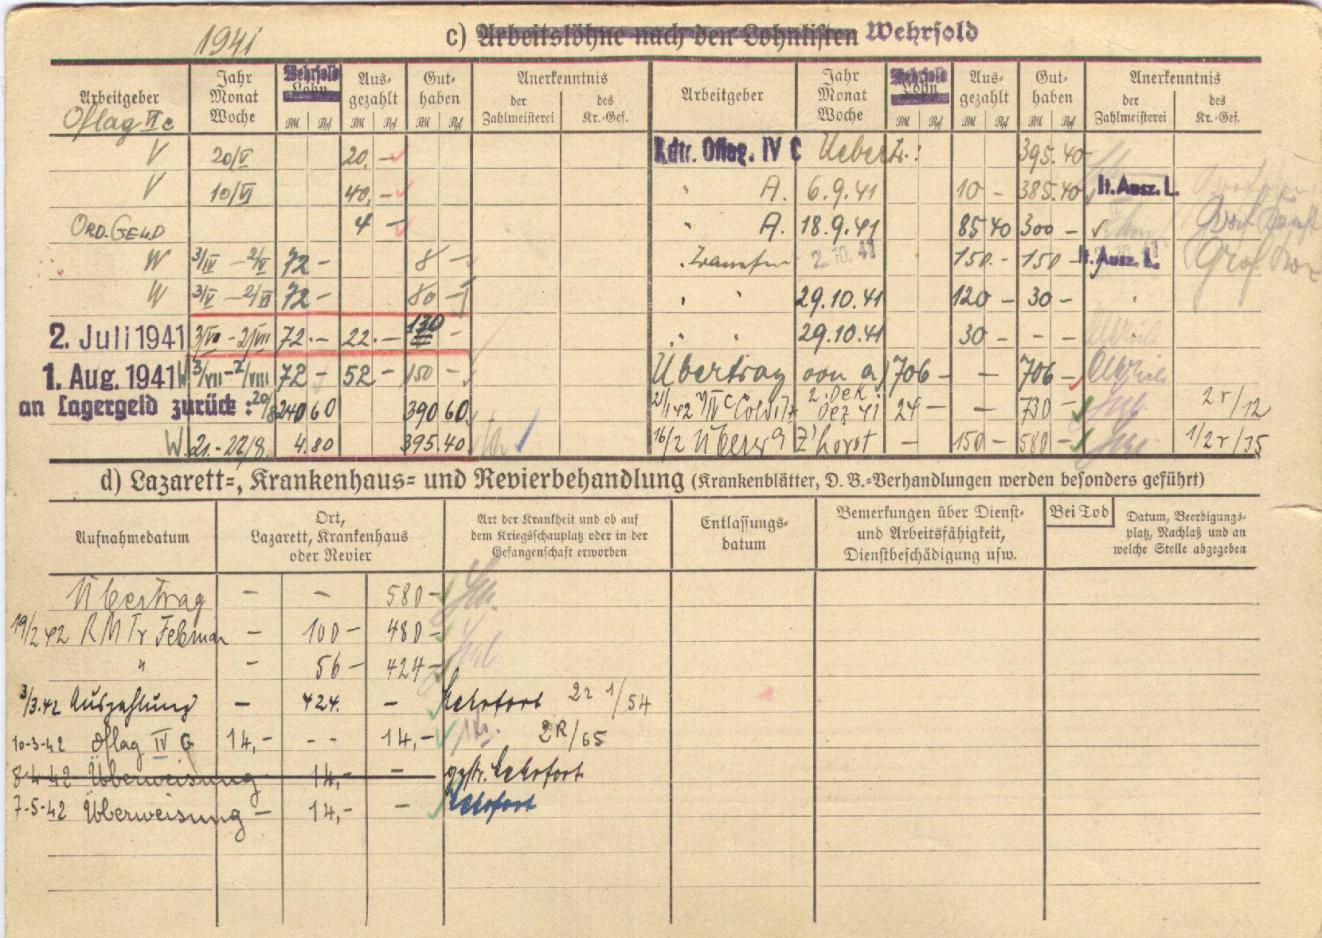 1941
c) Arbeitslöhne nach den Lohnlisten Wehrsold
Arbeitgeber
Jahr Monat Woche
Wehrsold Lohn
RM Pf
Ausgezahlt
RM Pf
Guthaben
RM Pf
Anerkenntnis
der Zahlmeisterei
des Kr.-Gef.
Arbeitgeber
Jahr Monat Woche
Wehrsold Lohn
RM Pf
Ausgezahlt
RM Pf
Guthaben
RM Pf
Anerkenntnis
der Zahlmeisterei
des Kr.-Gef.
Oflag II c
V 20/V 20.-
V 10/VI 40.-
ORD. GELD 4 -
W 3/IV - 2/V 72 - 8 -
W 3/V - 2/VI 72 - 80 -
2. Juli 1941 3/VI - 2/VII 72.- 22.- 130 -
1. Aug. 1941 W 3/VII - 2/VIII 72 - 52 - 150 -
an Lagergeld zurück: 20/8 240 60 390 60
W. 21.-22/8. 4.80 395.40
Kdtr. Oflag. IV C 395.40
" A. 6.9.41 10 - 385.40 lt. Ausz. L.
" A. 18.9.41 85 40 300 -
" Transfer 2.10.41 150.- 150 - lt. Ausz. L. Graf
" " 29.10.41 120 - 30 - "
" " 29.10.41 30 - - -
Übertrag von a) 706 - - 706 -
2. Dek. Dez 41 24 - - 730 - 2r/12
16/2 - 150 - 580 - 1/2r/35
d) Lazarett-, Krankenhaus- und Revierbehandlung (Krankenblätter, D. B.-Verhandlungen werden besonders geführt)
Aufnahmedatum
Ort, Lazarett, Krankenhaus oder Revier
Art der Krankheit und ob auf dem Kriegsschauplatz oder in der Gefangenschaft erworben
Entlassungsdatum
Bemerkungen über Dienst- und Arbeitsfähigkeit, Dienstbeschädigung usw.
Bei Tod
Datum, Beerdigungsplatz, Nachlaß und an welche Stelle abgegeben
Übertrag - - 580 -
19/2 42 R M Tr Februar - 100 - 480 -
" - 56 - 424 -
3/3.42 Auszahlung - 424. - 2r 1/54
10-3-42 Oflag IV C 14,- - - 14,- 2R/65
8-4-42 Überweisung 14,- - gestr.
7-5-42 Überweisung - 14,- -